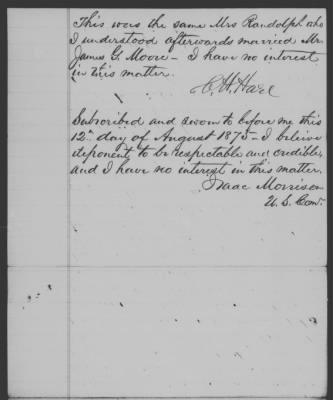 This was the same Mrs Randolph who
I understood afterwards married Mr
James G. Moore - I have no interest
in this matter.
C. H. Hare
Subscribed and sworn to before me this
12th day of August 1875 - I believe
deponent to be respectable and credible,
and I have no interest in this matter.
Isaac Morrison
U. S. Com.